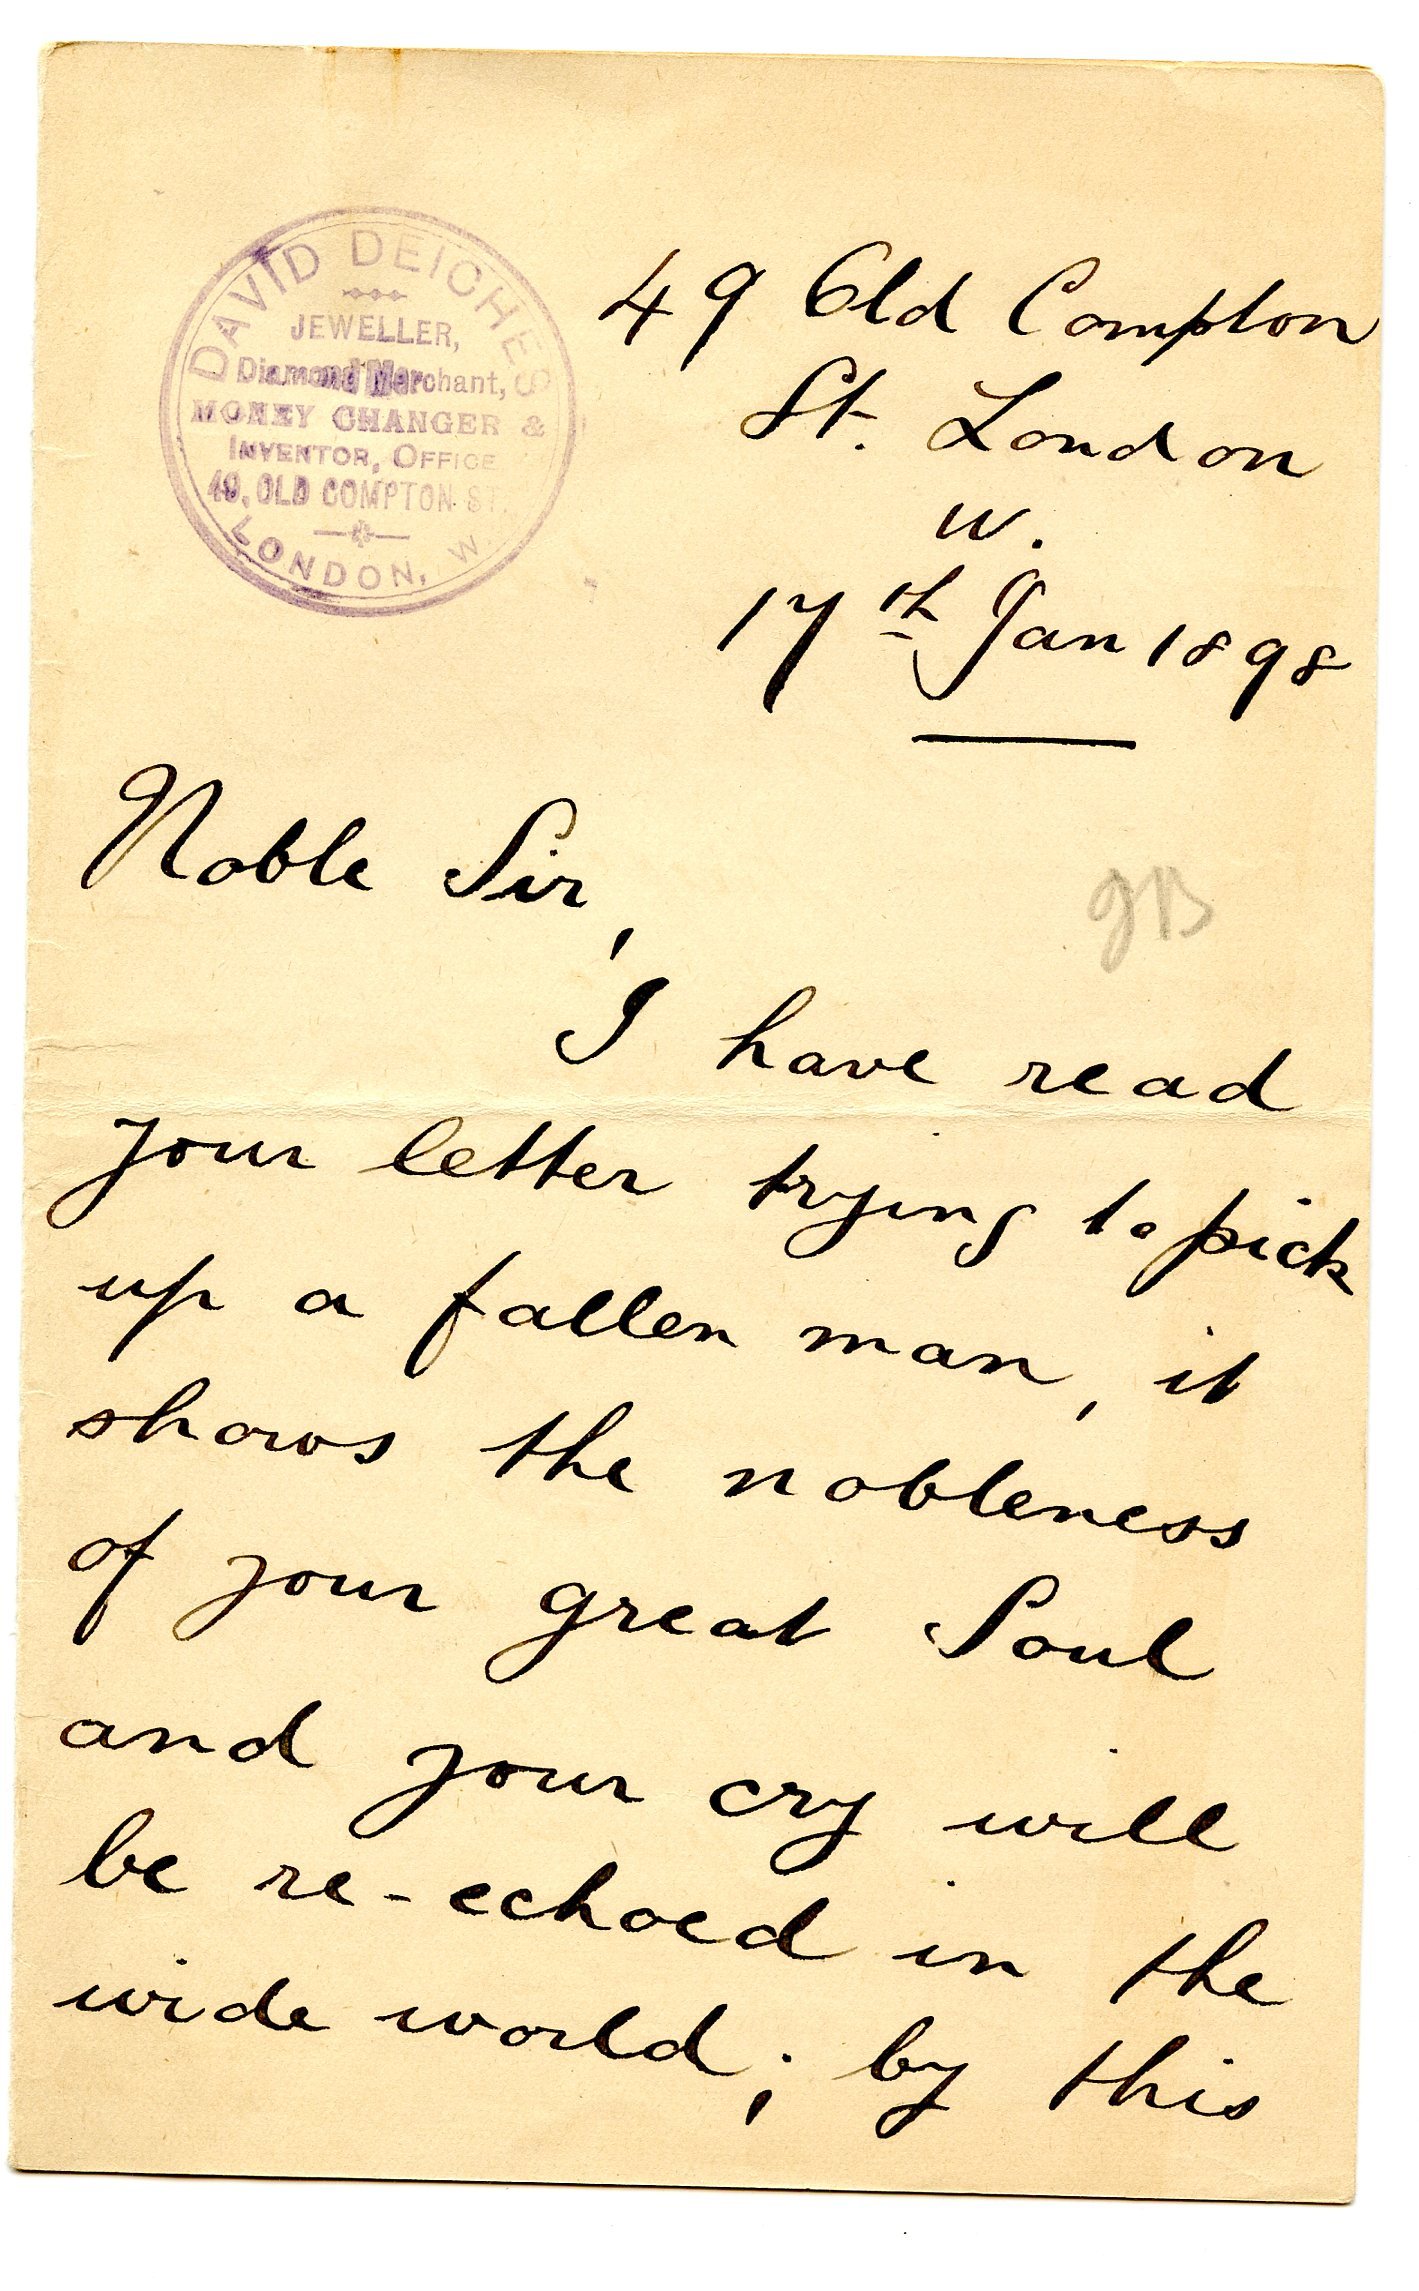 DAVID DEICHES
JEWELLER,
Diamond Merchant,
MONEY CHANGER &
INVENTOR, OFFICE
49, OLD COMPTON ST.
LONDON, W.
49 Old Compton
St. London
W.
17th Jan 1898
Noble Sir,
GB
I have read
your letter trying to pick
up a fallen man, it
shows the nobleness
of your great Soul
and your cry will
be re-echoed in the
wide world; by this